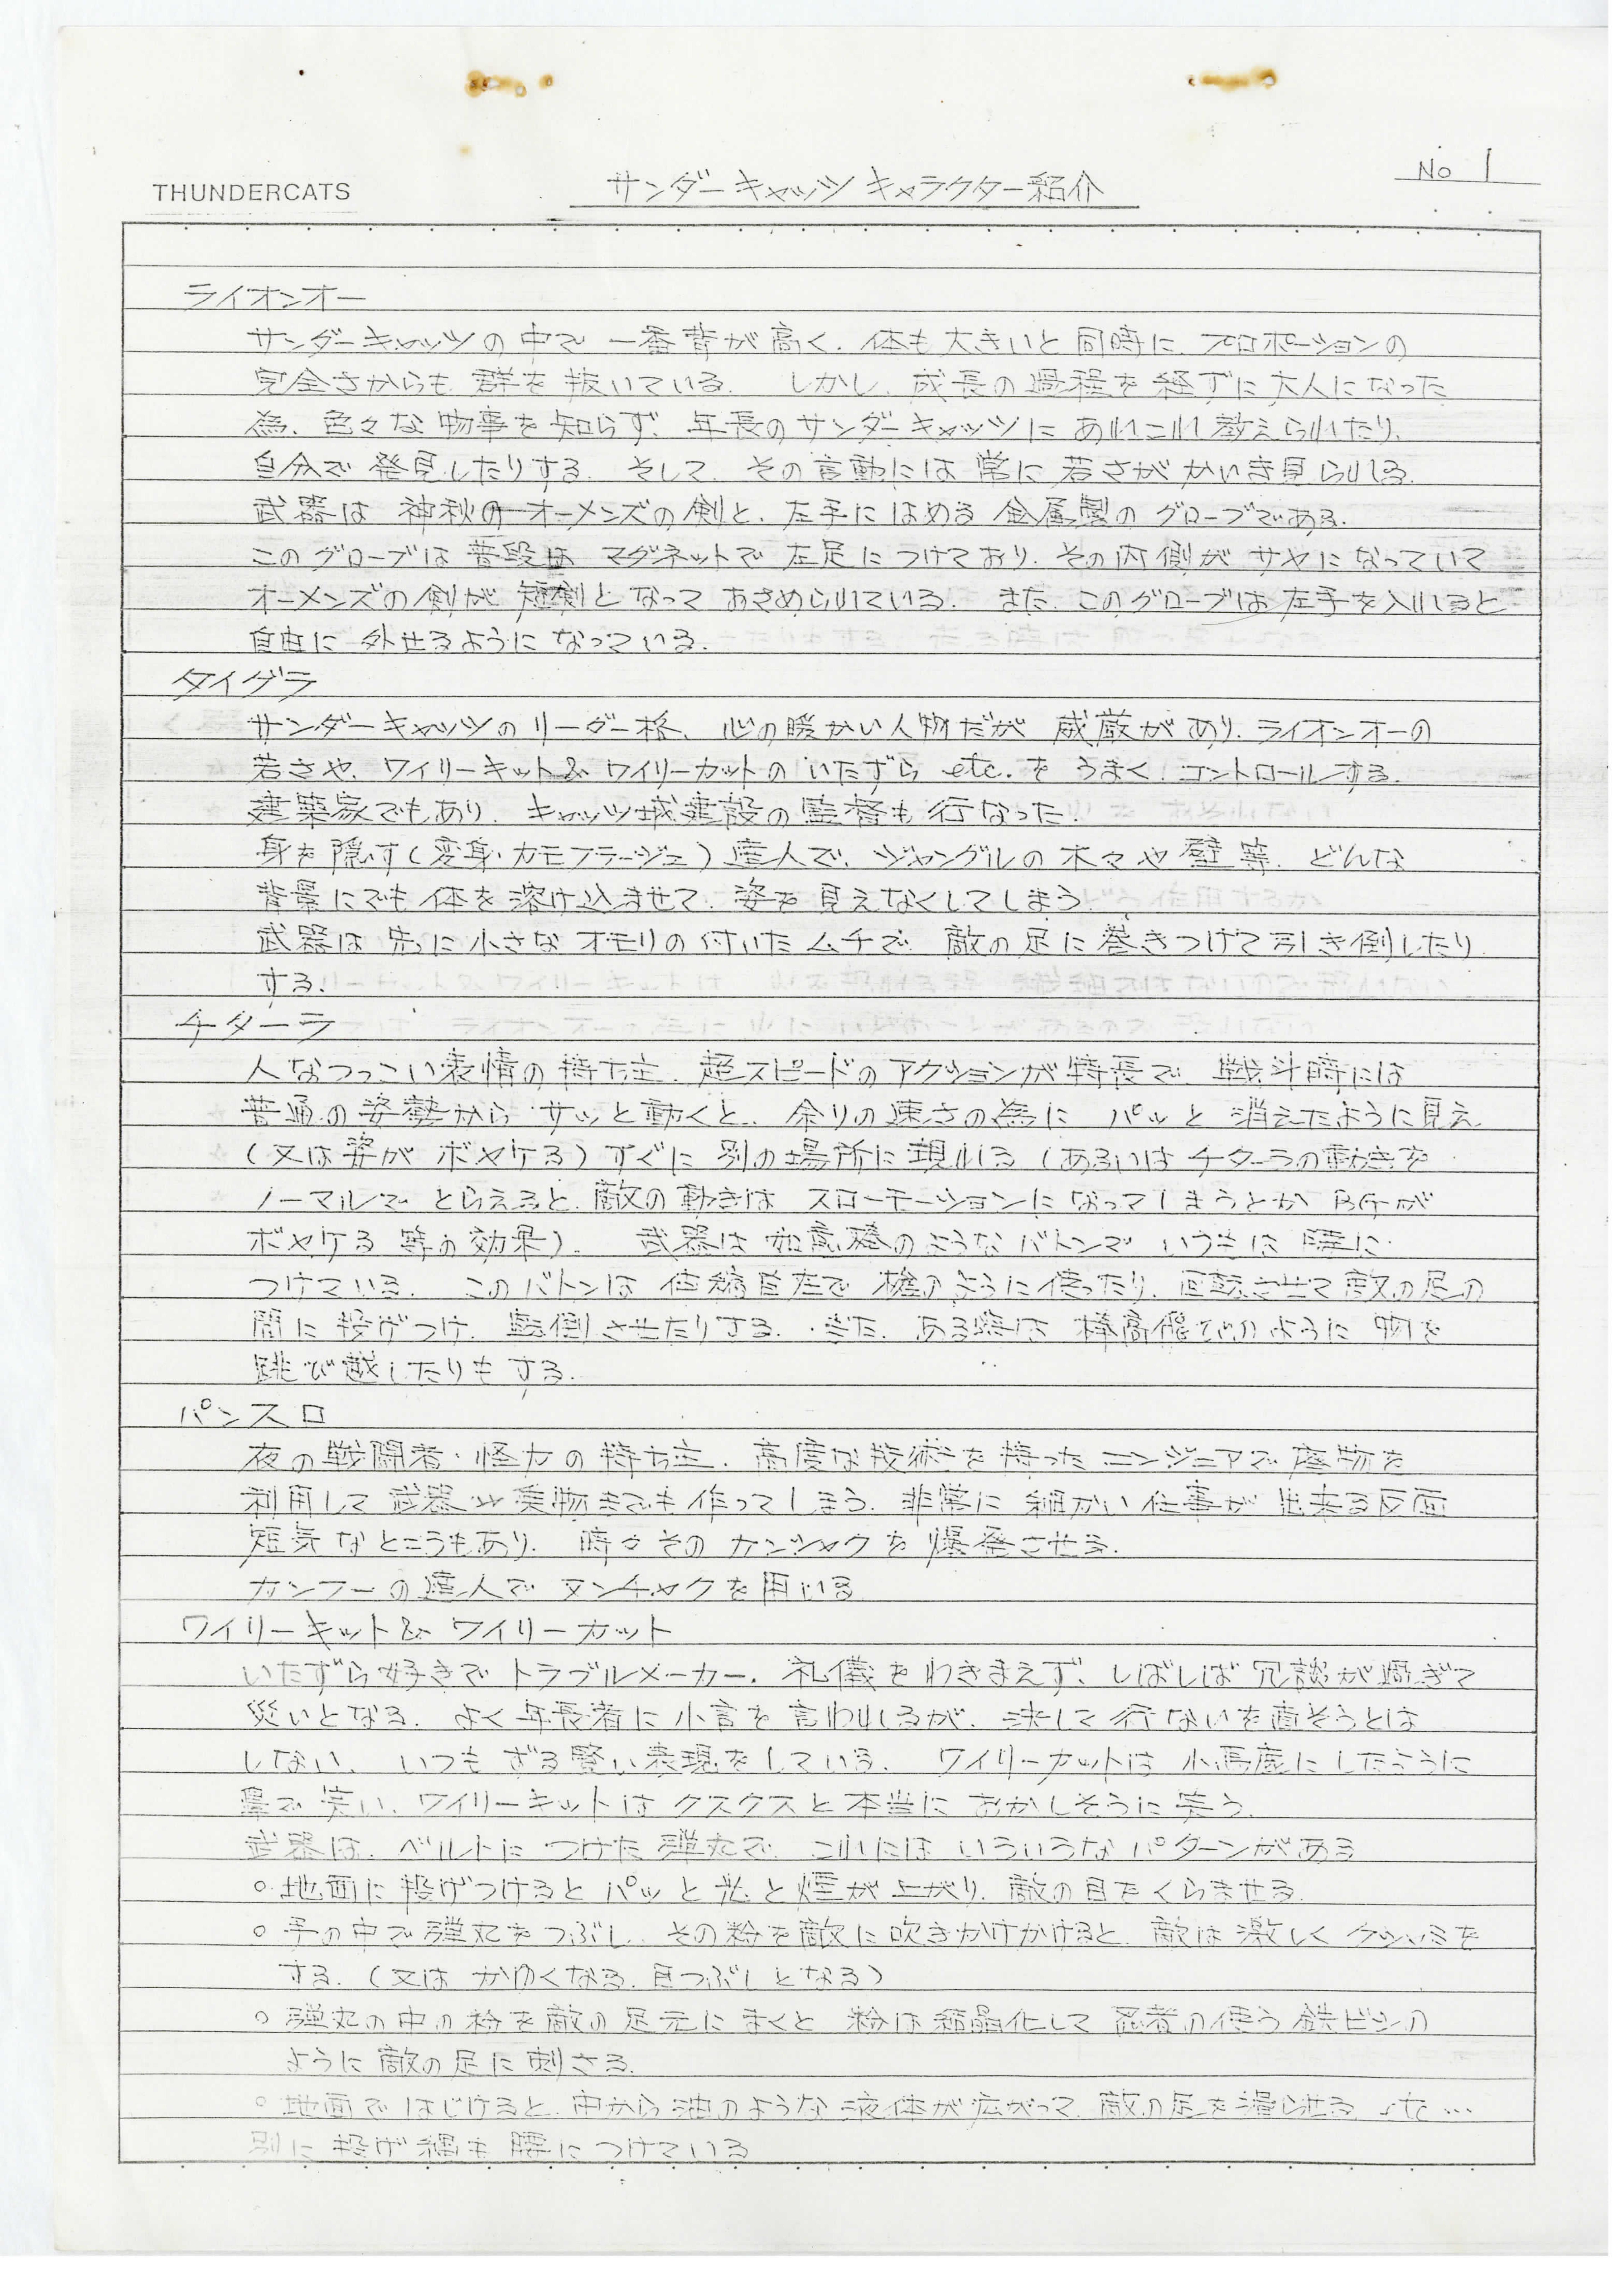 THUNDERCATS
サンダーキャッツ キャラクター紹介
No 1
ライオンオー
サンダーキャッツの中で 一番背が高く、体も大きいと同時に、プロポーションの
完全さからも 群を抜いている。 しかし、成長の過程を経ずに大人になった
為、色々な物事を知らず、年長のサンダーキャッツに あれこれ教えられたり、
自分で発見したりする。 そして、その言動には 常に若さが かいま見られる。
武器は 神秋のオーメンズの剣と、左手にはめる 金属製の グローブである。
このグローブは普段は マグネットで 左足につけており、その内側が サヤになっていて
オーメンズの剣が 短剣となって おさめられている。 また、このグローブは 左手を入れると
自由に 外せるように なっている。
タイグラ
サンダーキャッツの リーダー格、心の暖かい人物だが 威厳があり、ライオンオーの
若さや、ワイリーキット& ワイリーカットの いたずら etc. を うまく コントロールする。
建築家でもあり、キャッツ城建設の監督も行なった。
身を隠す(変身・カモフラージュ)達人で、ジャングルの 木々や 壁等、どんな
背景にでも 体を 溶け込ませて、姿を 見えなくしてしまう。
武器は 先に 小さな オモリの付いた ムチで、敵の足に巻きつけて引き倒したり
する。
チターラ
人なつっこい表情の持ち主、超スピードのアクションが特長で、戦斗時には
普通の姿勢から サッと動くと、余りの速さの為に パッと 消えたように見え
(又は姿が ボヤケる)すぐに 別の場所に現れる(あるいは チターラの動きを
ノーマルで とらえると、敵の動きは スローモーションになってしまうとか BGが
ボヤケる 等の効果)。 武器は 如意棒のようなバトンで いつもは 腰に
つけている。 このバトンは 伸縮自在で 槍のように使ったり、回転させて敵の足の
間に 投げつけ、転倒させたりする。 また、ある時は 棒高飛びのように 物を
跳び越したりもする。
パンスロ
夜の戦闘者・怪力の持ち主、高度な技術を 持った エンジニアで 廃物を
利用して 武器や乗物までも 作ってしまう。非常に 細かい仕事が 出来る反面
短気なところもあり、 時々その カンシャクを 爆発させる。
カンフーの達人で ヌンチャクを用いる
ワイリーキット& ワイリーカット
いたずら好きで トラブルメーカー。礼儀をわきまえず、しばしば 冗談が過ぎて
災いとなる。よく年長者に小言を言われるが、決して行ないを直そうとは
しない、いつも ずる賢い表現をしている。 ワイリーカットは 小馬鹿にしたように
鼻で笑い、ワイリーキットは クスクスと本当に おかしそうに笑う。
武器は、ベルトに つけた 弾丸で、これには いろいろな パターンがある
○地面に 投げつけると パッと光と煙が上がり、敵の目をくらませる。
○手の中で弾丸をつぶし、その粉を敵に吹きかけかけると、敵は激しく クシャミを
する。(又は かゆくなる、目つぶしとなる)
○弾丸の中の粉を敵の足元にまくと 粉は結晶化して 忍者の使う 鉄ビシの
ように 敵の足に 刺さる。
○地面で はじけると、中から油のような 液体が広がって、敵の足を滑らせる …
別に 投げ縄も 腰に つけている